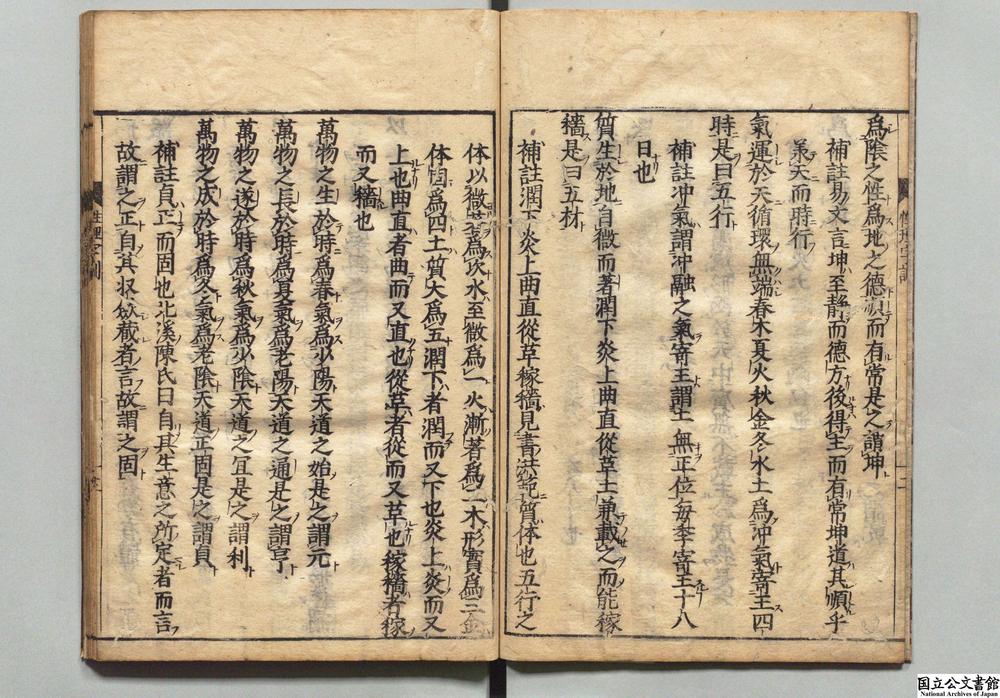 爲陰之性爲地之德順而有常是之謂坤
補註易文言坤至静而德方後得主而有常坤道其順乎
承天而時行
氣運於天循環無端春木夏火秋金冬水土爲冲氣寄王四
時是曰五行
補註冲氣謂冲融之氣寄王謂土無正位每季寄王十八
日也
質生於地自微而著潤下炎上曲直從革土兼載之而能稼
穡是曰五材
補註潤下炎上曲直從革稼穡見書洪範質体也五行之
体以微著爲次水至微爲一火漸著爲二木形實爲三金
体固爲四土質大爲五潤下者潤而又下也炎上炎而又
上也曲直者曲而又直也從革者從而又革也稼穡者稼
而又穡也
萬物之生於時爲春氣爲少陽天道之始是之謂元
萬物之長於時爲夏氣爲老陽天道之通是之謂亨
萬物之遂於時爲秋氣爲少陰天道之宜是之謂利
萬物之成於時爲冬氣爲老陰天道正固是之謂貞
補註貞正而固也北溪陳氏曰自其生意之所定者而言
故謂之正自其収斂藏者言故謂之固
性理字訓
国立公文書館
National Archives of Japan